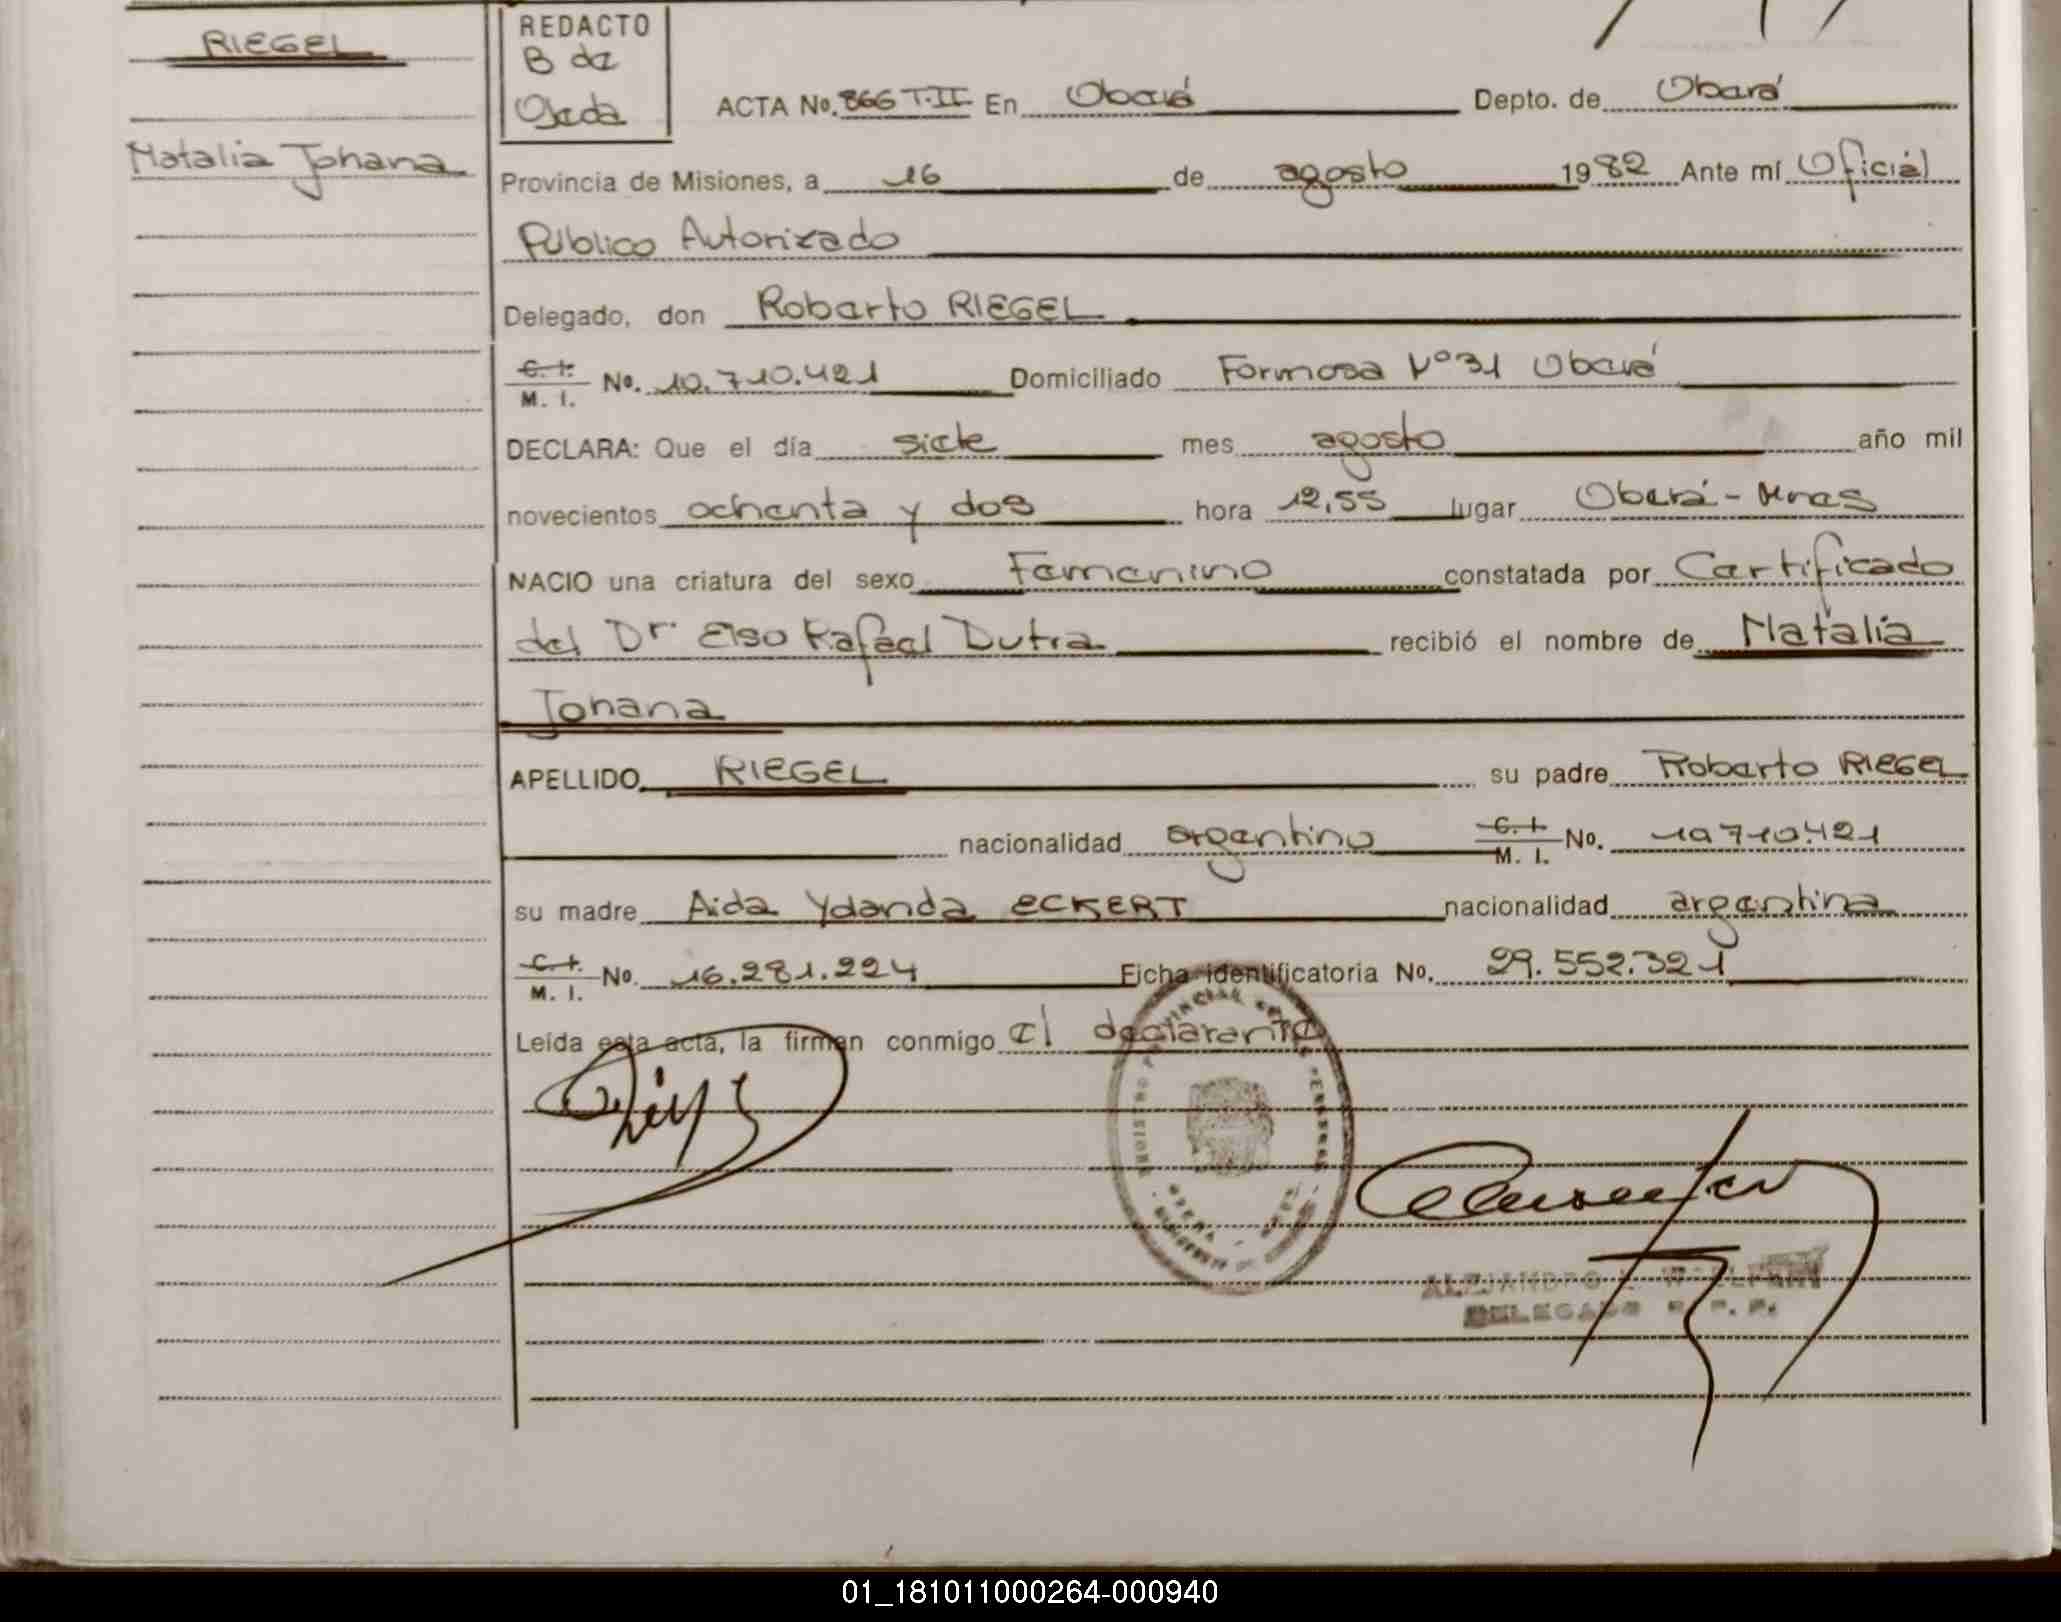 RIEGEL
Natalia Johana
REDACTO
B de
Ojeda
ACTA No. 866 T-II En Oberá Depto. de Oberá
Provincia de Misiones, a 16 de agosto 1982 Ante mí Oficial
Publico Autorizado
Delegado, don Roberto RIEGEL
C. I. M. I. No. 10.710.421 Domiciliado Formosa Nº31 Oberá
DECLARA: Que el día siete mes agosto año mil
novecientos ochenta y dos hora 12,55 lugar Oberá - Mnes
NACIO una criatura del sexo Femenino constatada por Certificado
del Dr Elso Rafael Dutra recibió el nombre de Natalia
Johana
APELLIDO RIEGEL su padre Roberto RIEGEL
nacionalidad argentino C. I. M. I. No. 10710.421
su madre Aida Yolanda ECKERT nacionalidad argentina
C. I. M. I. No. 16.281.224 Ficha identificatoria No. 29.552.321
Leída esta acta, la firman conmigo el declarante
ALEJANDRO
DELEGADO R. P. P.
01_181011000264-000940